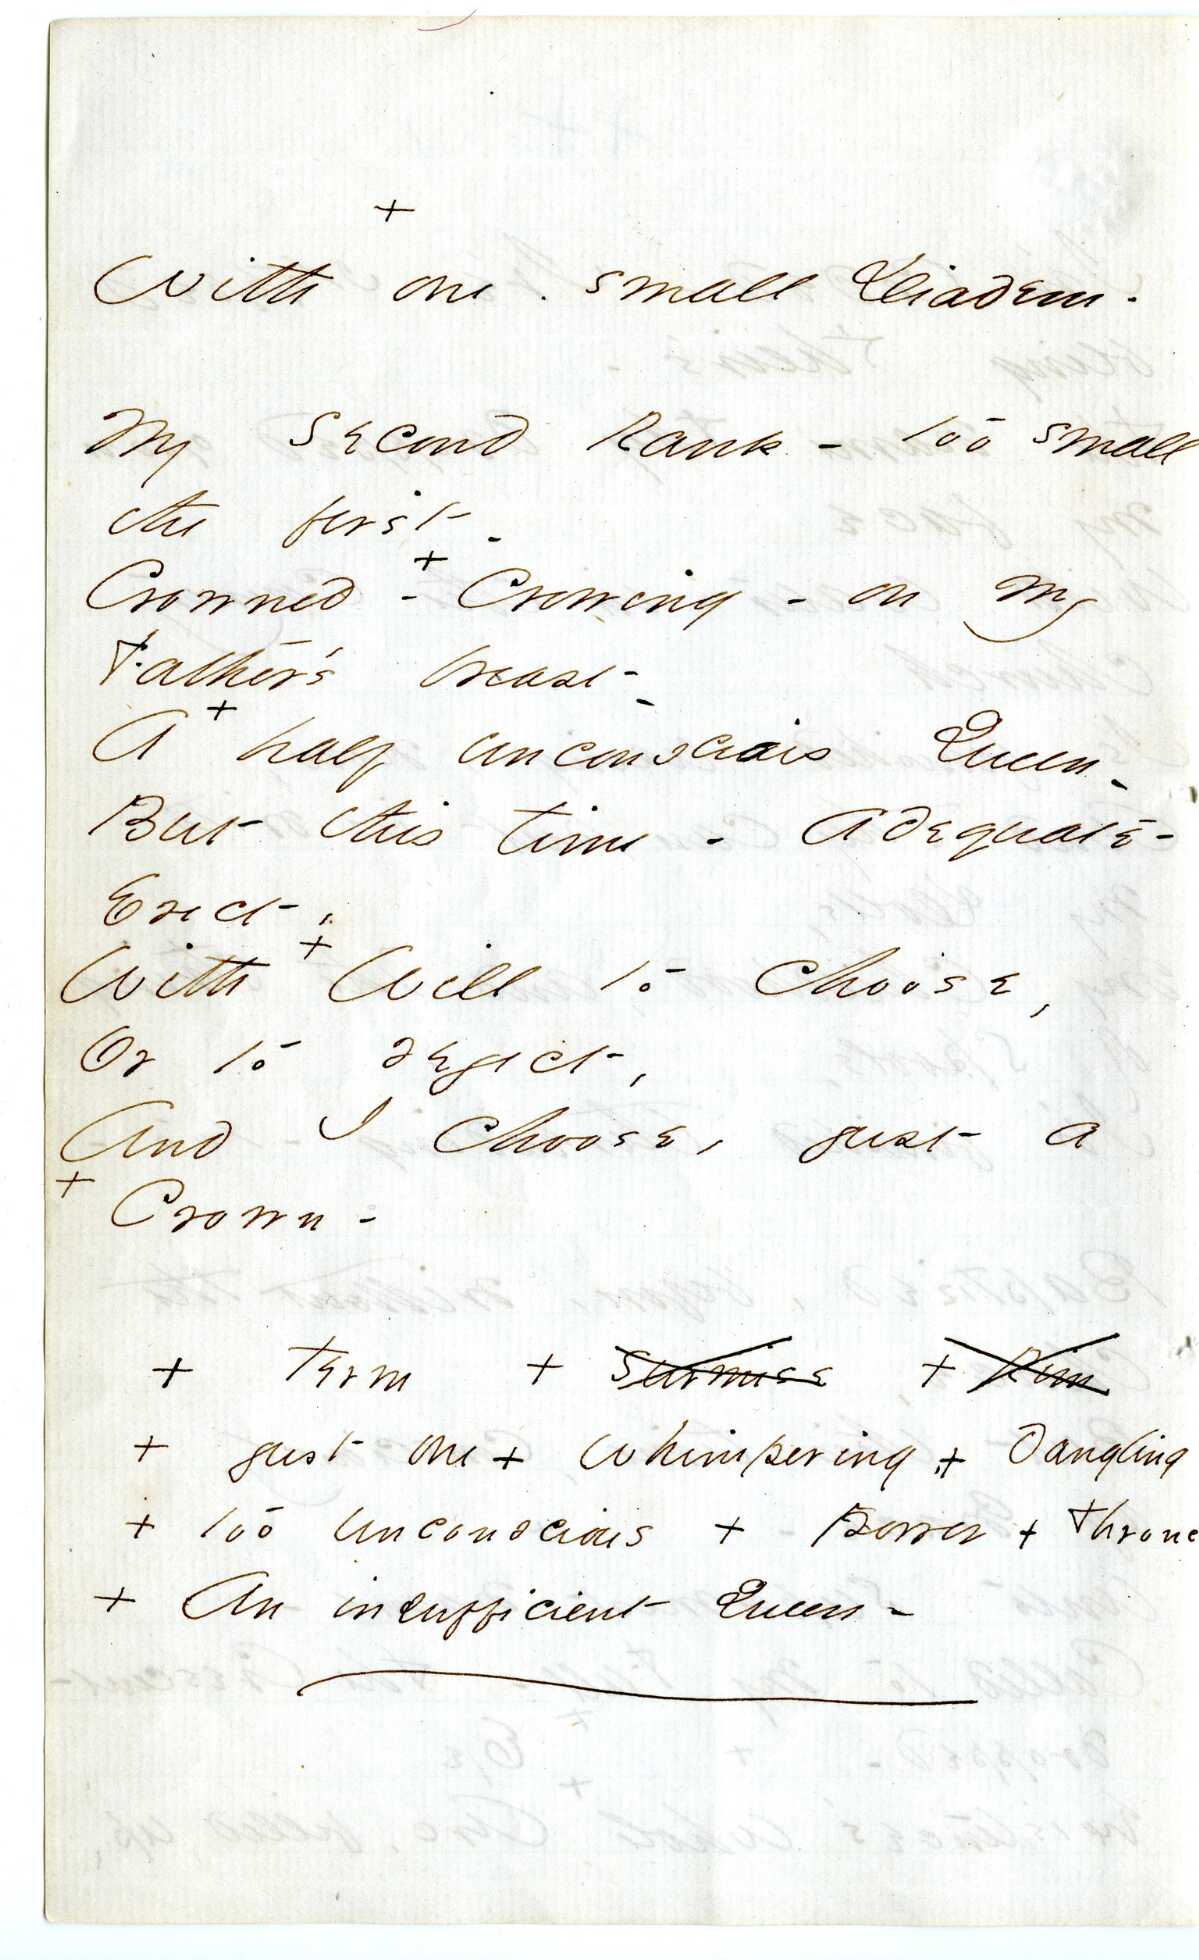 +
With one small Diadem.
My second Rank - too small
the first -
+
Crowned - Crowing - on my
Father's breast -
+
A half unconscious Queen -
But this time - Adequate -
Erect,
+
With Will to choose,
Or to reject,
And I choose, just a
+
Crown -
+ term + Surmise + Rim
+ just one + Whimpering + Dangling
+ too unconscious + Power + Throne
+ An insufficient Queen -